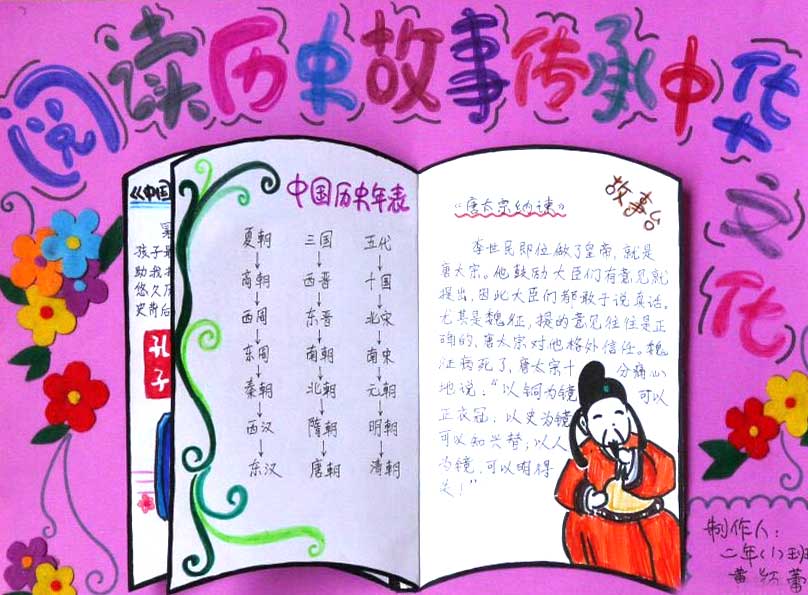 阅读历史故事传承中华文化
《中国
孩子最
助我
悠久历
史背后
孔
子
中国历史年表
夏朝 三国 五代
商朝 西晋 十国
西周 东晋 北宋
东周 南朝 南宋
秦朝 北朝 元朝
西汉 隋朝 明朝
东汉 唐朝 清朝
故事台
《唐太宗纳谏》
李世民即位做了皇帝,就是
唐太宗。他鼓励大臣们有意见就
提出,因此大臣们都敢于说真话。
尤其是魏征,提的意见往往是正
确的,唐太宗对他格外信任。魏
征病死了,唐太宗十分痛心
地说:“以铜为镜 可以
正衣冠,以史为镜
可以知兴替;以人
为镜,可以明得
失!”
制作人:
二年(1)班
黄 蕾